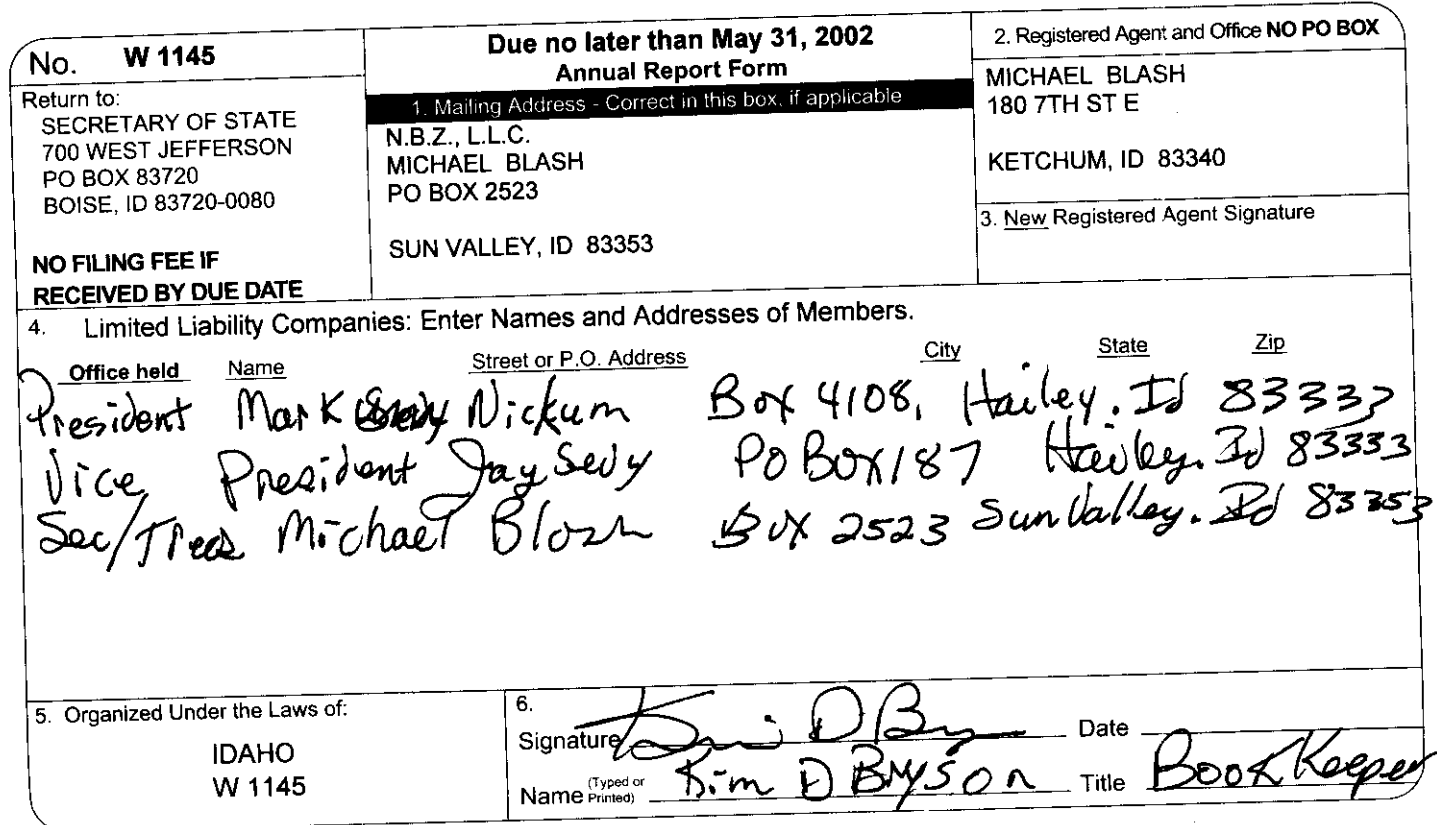 No. W 1145
Return to:
SECRETARY OF STATE
700 WEST JEFFERSON
PO BOX 83720
BOISE, ID 83720-0080
NO FILING FEE IF
RECEIVED BY DUE DATE
Due no later than May 31, 2002
Annual Report Form
1. Mailing Address - Correct in this box, if applicable
N.B.Z., L.L.C.
MICHAEL BLASH
PO BOX 2523
SUN VALLEY, ID 83353
2. Registered Agent and Office NO PO BOX
MICHAEL BLASH
180 7TH ST E
KETCHUM, ID 83340
3. New Registered Agent Signature
4. Limited Liability Companies: Enter Names and Addresses of Members.
Office held Name Street or P.O. Address City State Zip
President Mark Nickum Box 4108, Hailey. Id 83333
Vice President Jay Sevy PO Box 187 Hailey. Id 83333
Sec/Treas Michael Blash Box 2523 Sun Valley. Id 83353
5. Organized Under the Laws of:
IDAHO
W 1145
6.
Signature Kim D Bryson Date
Name (Typed or Printed) Kim D Bryson Title BookKeeper